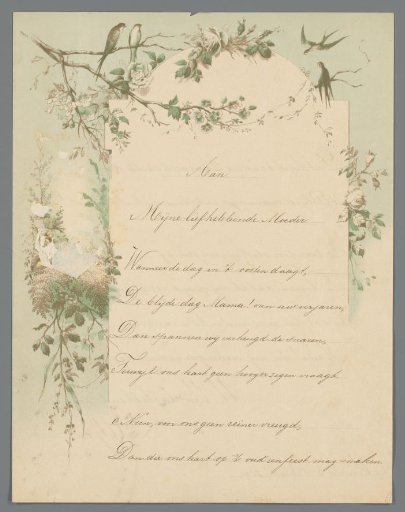 Aan
Mijne liefhebbende Moeder
Wanneer de dag in 't oosten daagt,
De blijde dag Mama! van uw verjaren,
Dan spannen wij verheugd de snaren,
Terwijl ons hart geen hooger zegen vraagt
Neen, voor ons geen reiner vreugd,
Dan die ons hart op 't oud enfeest mag smaken